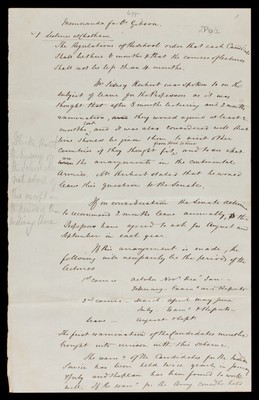 Memoranda for Dr Gibson.
1 Lectures at Chatham.
The Regulations of the School order that each Candidate
shall be there 4 months & that the course of lectures
shall not be less than 4 months.
Mr Sidney Herbert was spoken to on the
subject of leave for the Professors as it was
thought that after 3 months lecturing and 2 months
examination, they would require at least 2
months rest, and it was also considered well that
time should be given them to visit other
countries from time to time if they thought fit, and to see what
are the arrangements in the continental
Armies. Mr Herbert stated that he would
leave this question to the Senate.
After consideration the Senate
to recommend 2 months leave annually, & the
Professors have agreed to ask for August and
September in each year.
If this arrangement is made, the
following will necessarily be the periods of the
lectures
1st course October Novr Decr Jan –
February. Exam and Reports
2nd course March April May June
July. Exam & Reports.
Leave – August & Sept.
The first examination of the Candidates must be
brought into unison with this scheme.
The exam of the Candidates for the Indian
Service has been held twice yearly in January
& July and this plan has been found to work
well. If the exam for the Army could be held